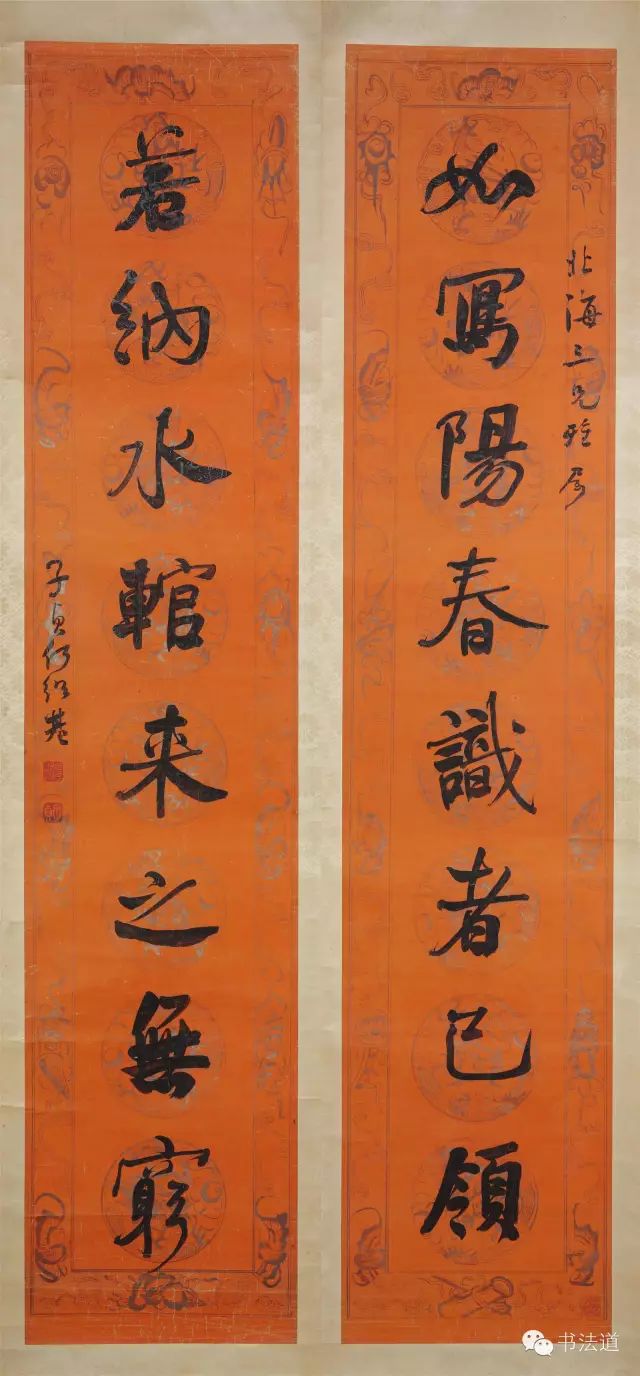 北海三兄雅屬
如寫陽春識者已領
若納水輨来之無窮
子貞何紹基
书法道